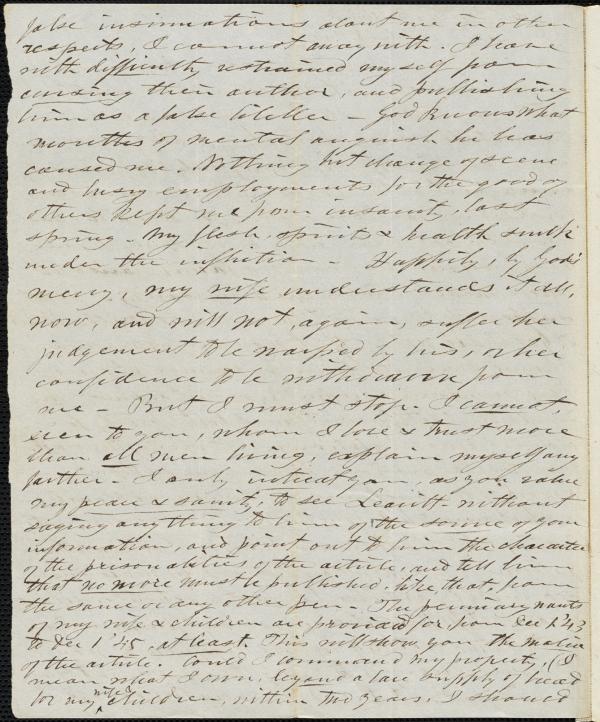 false insinuations about me in other
respects, I cannot away with. I have
with difficulty restrained myself from
cursing their author, and publishing
him as a false libeller - God knows what
months of mental anguish he has
caused me. Nothing but change of scene
and busy employments for the good of
others kept me from insanity, last
spring. My flesh, spirit & health sunk
under the infliction - Happily, by God's
mercy, my wife understands it all,
now, and will not, again, suffer her
judgement to be warped by his, or her
confidence to be withdrawn from
me - But I must stop. I cannot,
even to you, whom I love & trust more
than all men living, explain myself any
farther. I only intreat you, as you value
my peace & sanity, to see Leavitt - without
saying anything to him of the source of your
information, and point out to him the character
of the personalities of the article, and tell him
that no more must be published like that, from
the same or any other pen - The pecuniary wants
of my wife & children are provided for, from Dec 1 '43
to Dec 1 '45, at least. This will show you the malice
of the article. Could I command my property, (I
mean what I own, beyond a bare supply of bread
for my wife & children, within two years, I should